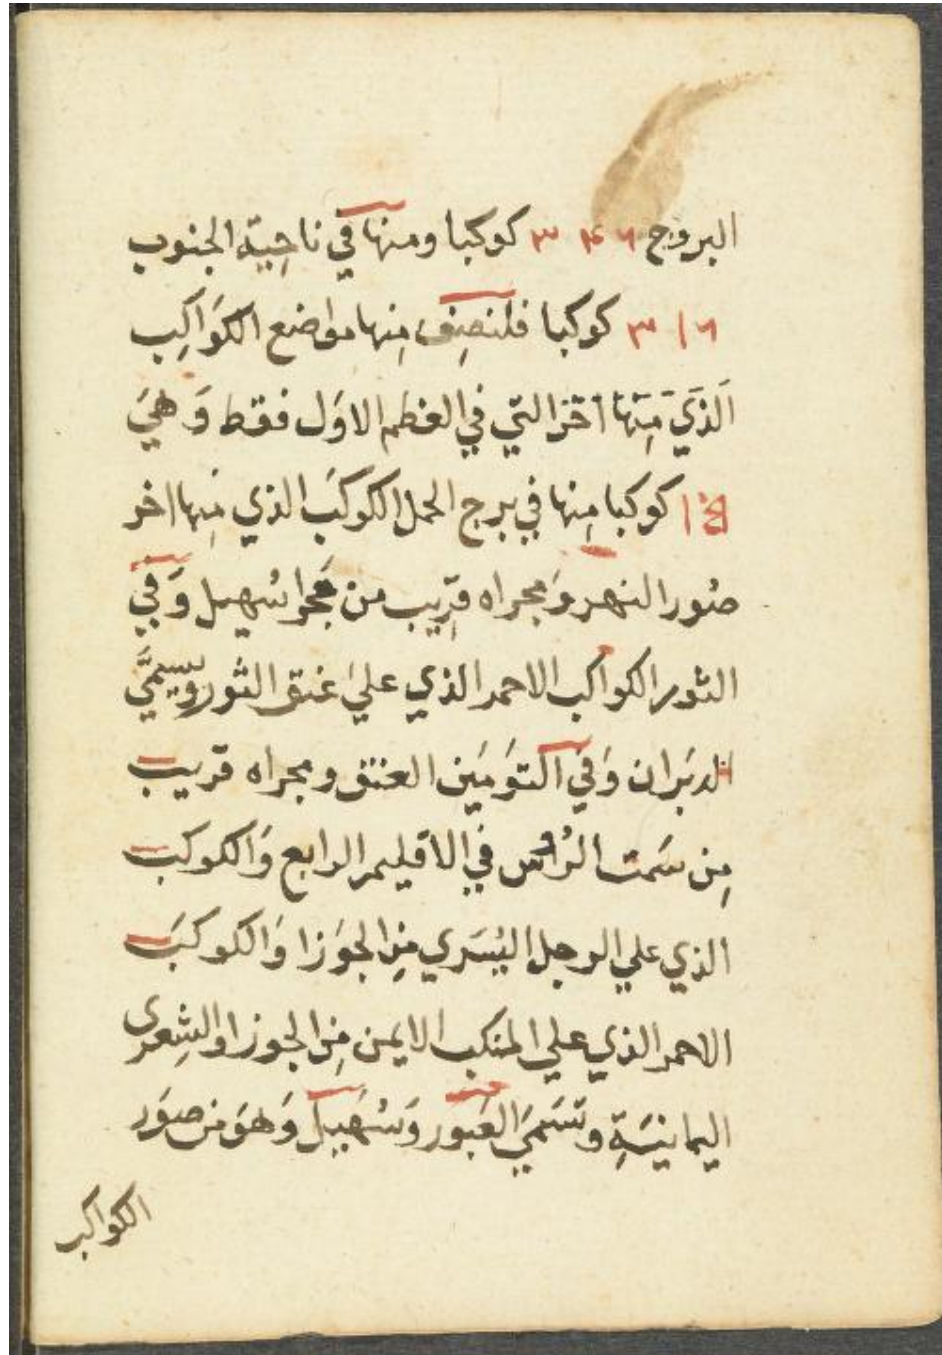 البروج ٣٤٦ كوكبا ومنها في ناحِية الجنوب
٣١٦ كوكبا فلنصِف مِنها مواضع الكوَاكِب
الَذَي مِنَها اخز التي في العظم الاوَل فقط وَهيَ
١٥ كوكبا مِنها في برج الحمل الكوكبَ الذي مِنها اخر
صُور النهر وَمجراه قرِيب من مَجرا سُهيل وَفي
الثور الكواكب الاحمر الذي علي عنق الثور ويسمَّي
الدبَران وَفي التوَمَين العنق ومجراه قريب
مِن سَمت الرُاس في الاقليم الرابع وَالكوكب
الذي علي الرجل اليُسَري مِن الجوَزا وَالكوكبَ
الاحمر الذي علي المنكب الايمن مِن الجوزا والشِعرى
اليمانيَة وتسَميَ العَبور وَسُهَيل وَهوَ من صوَر
الكواكب